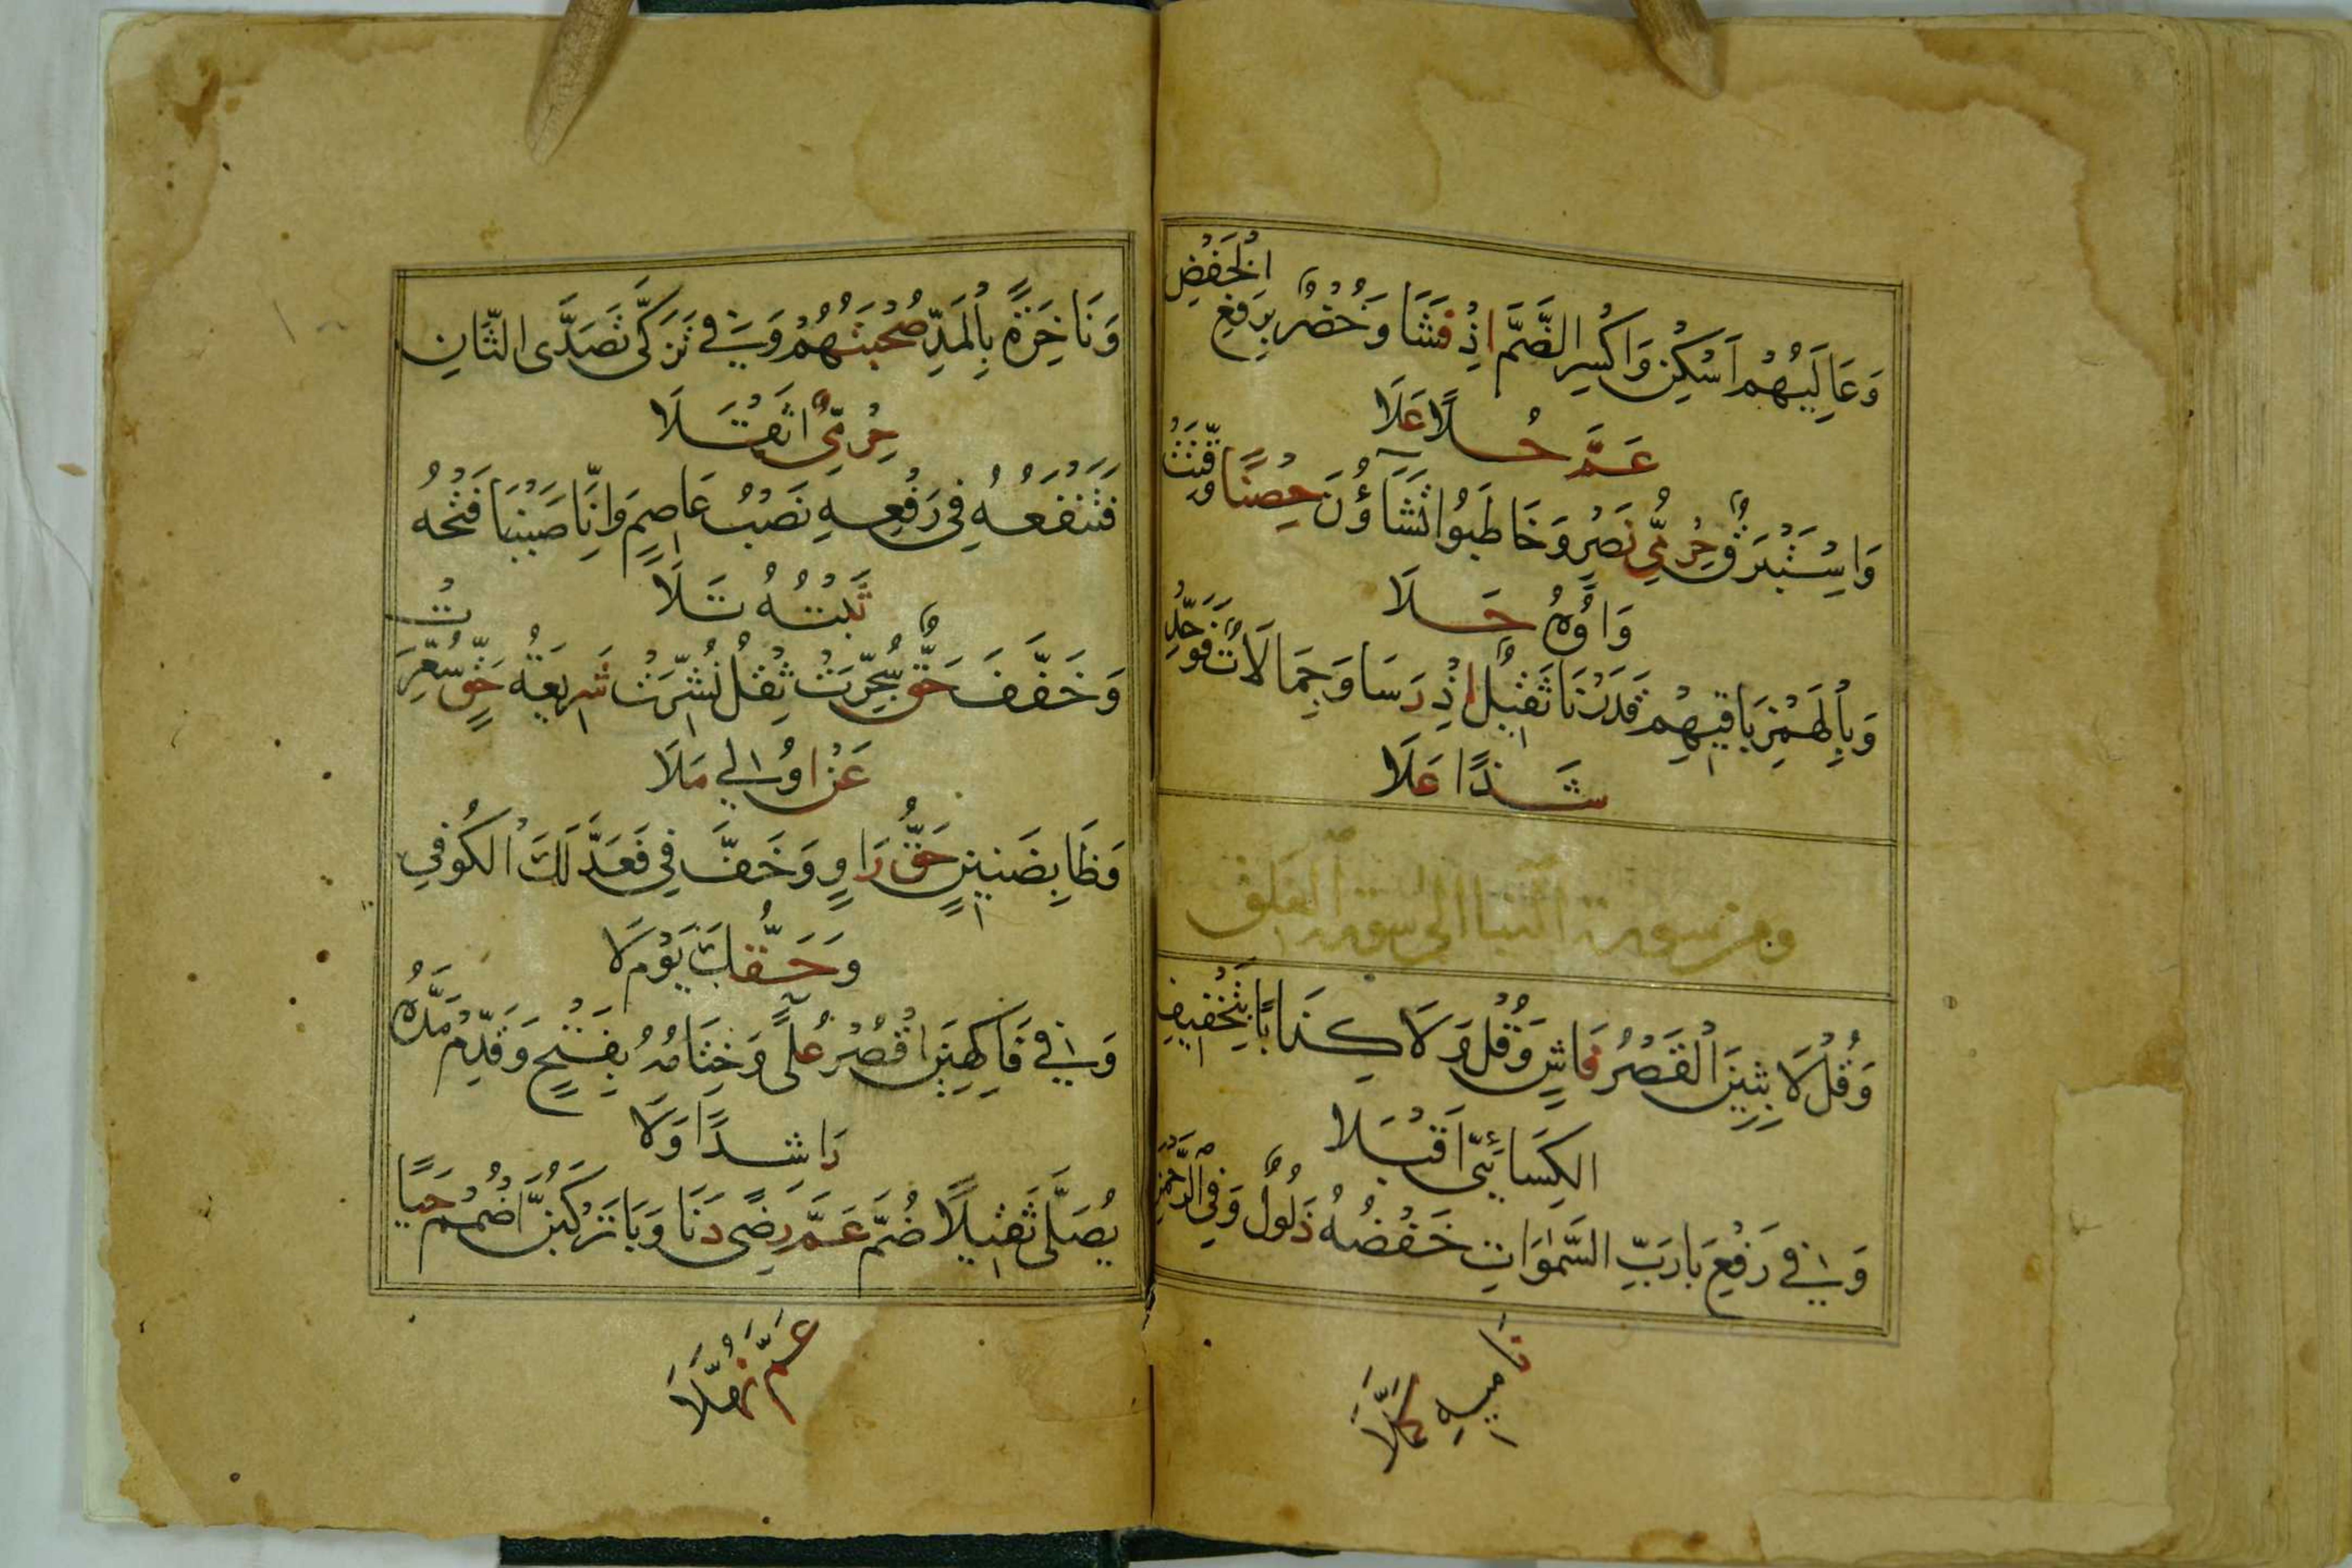 وَعَالِيَهُمْ اَسْكِنْ وَاكْسِرِ الضَّمَّ اِذْ فَشَا وَخُضْرٌ بِرَفْعِ الْخَفْضِ
عَمَّ حُلًا عَلَا
وَاِسْتَبْرَقٌ حِرْمِيُّ نَصْرٍ وَخَاطَبُوا تَشَاؤُنَ حِصْنٌ وُقِّتَتْ
وَاوُهُ حَلَا
وَبِالْهَمْزِ بَاقِيهِمْ قَدَرْنَا ثَقِيلٌ اِذْ رَسَا وَجِمَالَاتٌ فَوَحِّدْ
شَذًا عَلَا
ومن سورة النبا الى سورة العلق
وَقُلْ لَابِثِينَ الْقَصْرُ فَاشٍ وَقُلْ وَلَا كِذَابًا بِتَخْفِيفِ
الكِسَائِيِّ اَقْبَلَا
وَفِي رَفْعِ بَا رَبِّ السَّمٰوَاتِ خَفْضُهُ ذَلُولٌ وَفِي الرَّحْمٰنِ
نَامِيهِ كَمَّلَا
وَنَاخِرَةً بِالْمَدِّ صُحْبَتُهُمْ وَفِي تَزَكَّى تَصَدَّى الثَّانِ
حِرْمِيٌّ اثْقَلَا
فَتَنْفَعُهُ فِي رَفْعِهِ نَصْبُ عَاصِمٍ وَاِنَّا صَبَبْنَا فَتْحُهُ
ثَبْتُهُ تَلَا
وَخَفَّفَ حَقٌّ سُجِّرَتْ ثِقْلُ نُشِّرَتْ شَرِيعَةُ حَقٍّ سُعِّرَتْ
عَنْ اُولِي مَلَا
وَظَا بِضَنِينٍ حَقُّ رَاوٍ وَخَفَّ فِي فَعَدَّلَكَ الْكُوفِي
وَحَقُّكَ يَوْمُ لَا
وَفِي فَاكِهِينَ اقْصُرْ عُلًى وَخِتَامُهُ بِفَتْحٍ وَقَدِّمْ مَدَّهُ
رَاشِدًا وَلَا
يُصَلَّى ثَقِيلًا ضُمَّ عَمَّ رِضًى دَنَا وَبَا تَرْكَبُنَّ اضْمُمْ حَيًا
عَمَّ نُهَّلَا